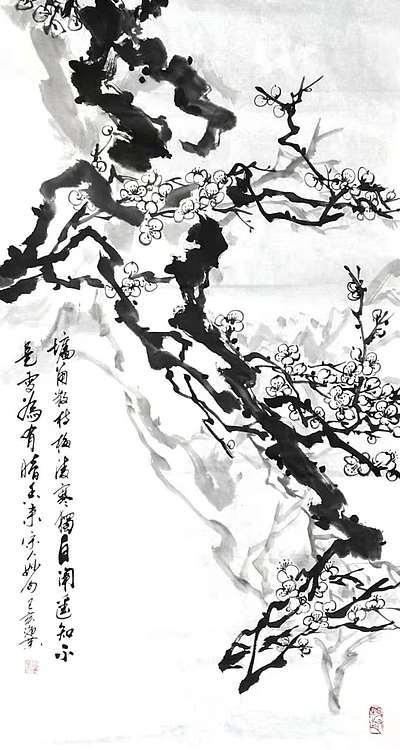 墙角数枝梅凌寒獨自開遥知不
是雪為有暗香来宋人妙句己亥